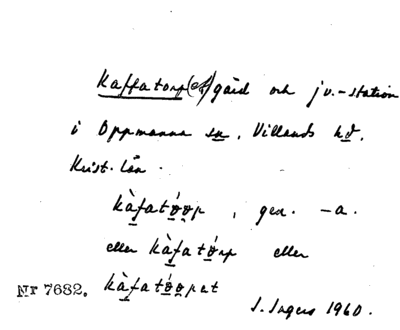 Kaffatorp(et) gård och jv.-station
i Oppmanna sn, Villands hd.
Krist. län.
kàfató̤o̤p, gen. -a.
eller kàfató̤rp eller
Nr 7682. kàfató̤o̤pet
I. Ingers 1960.